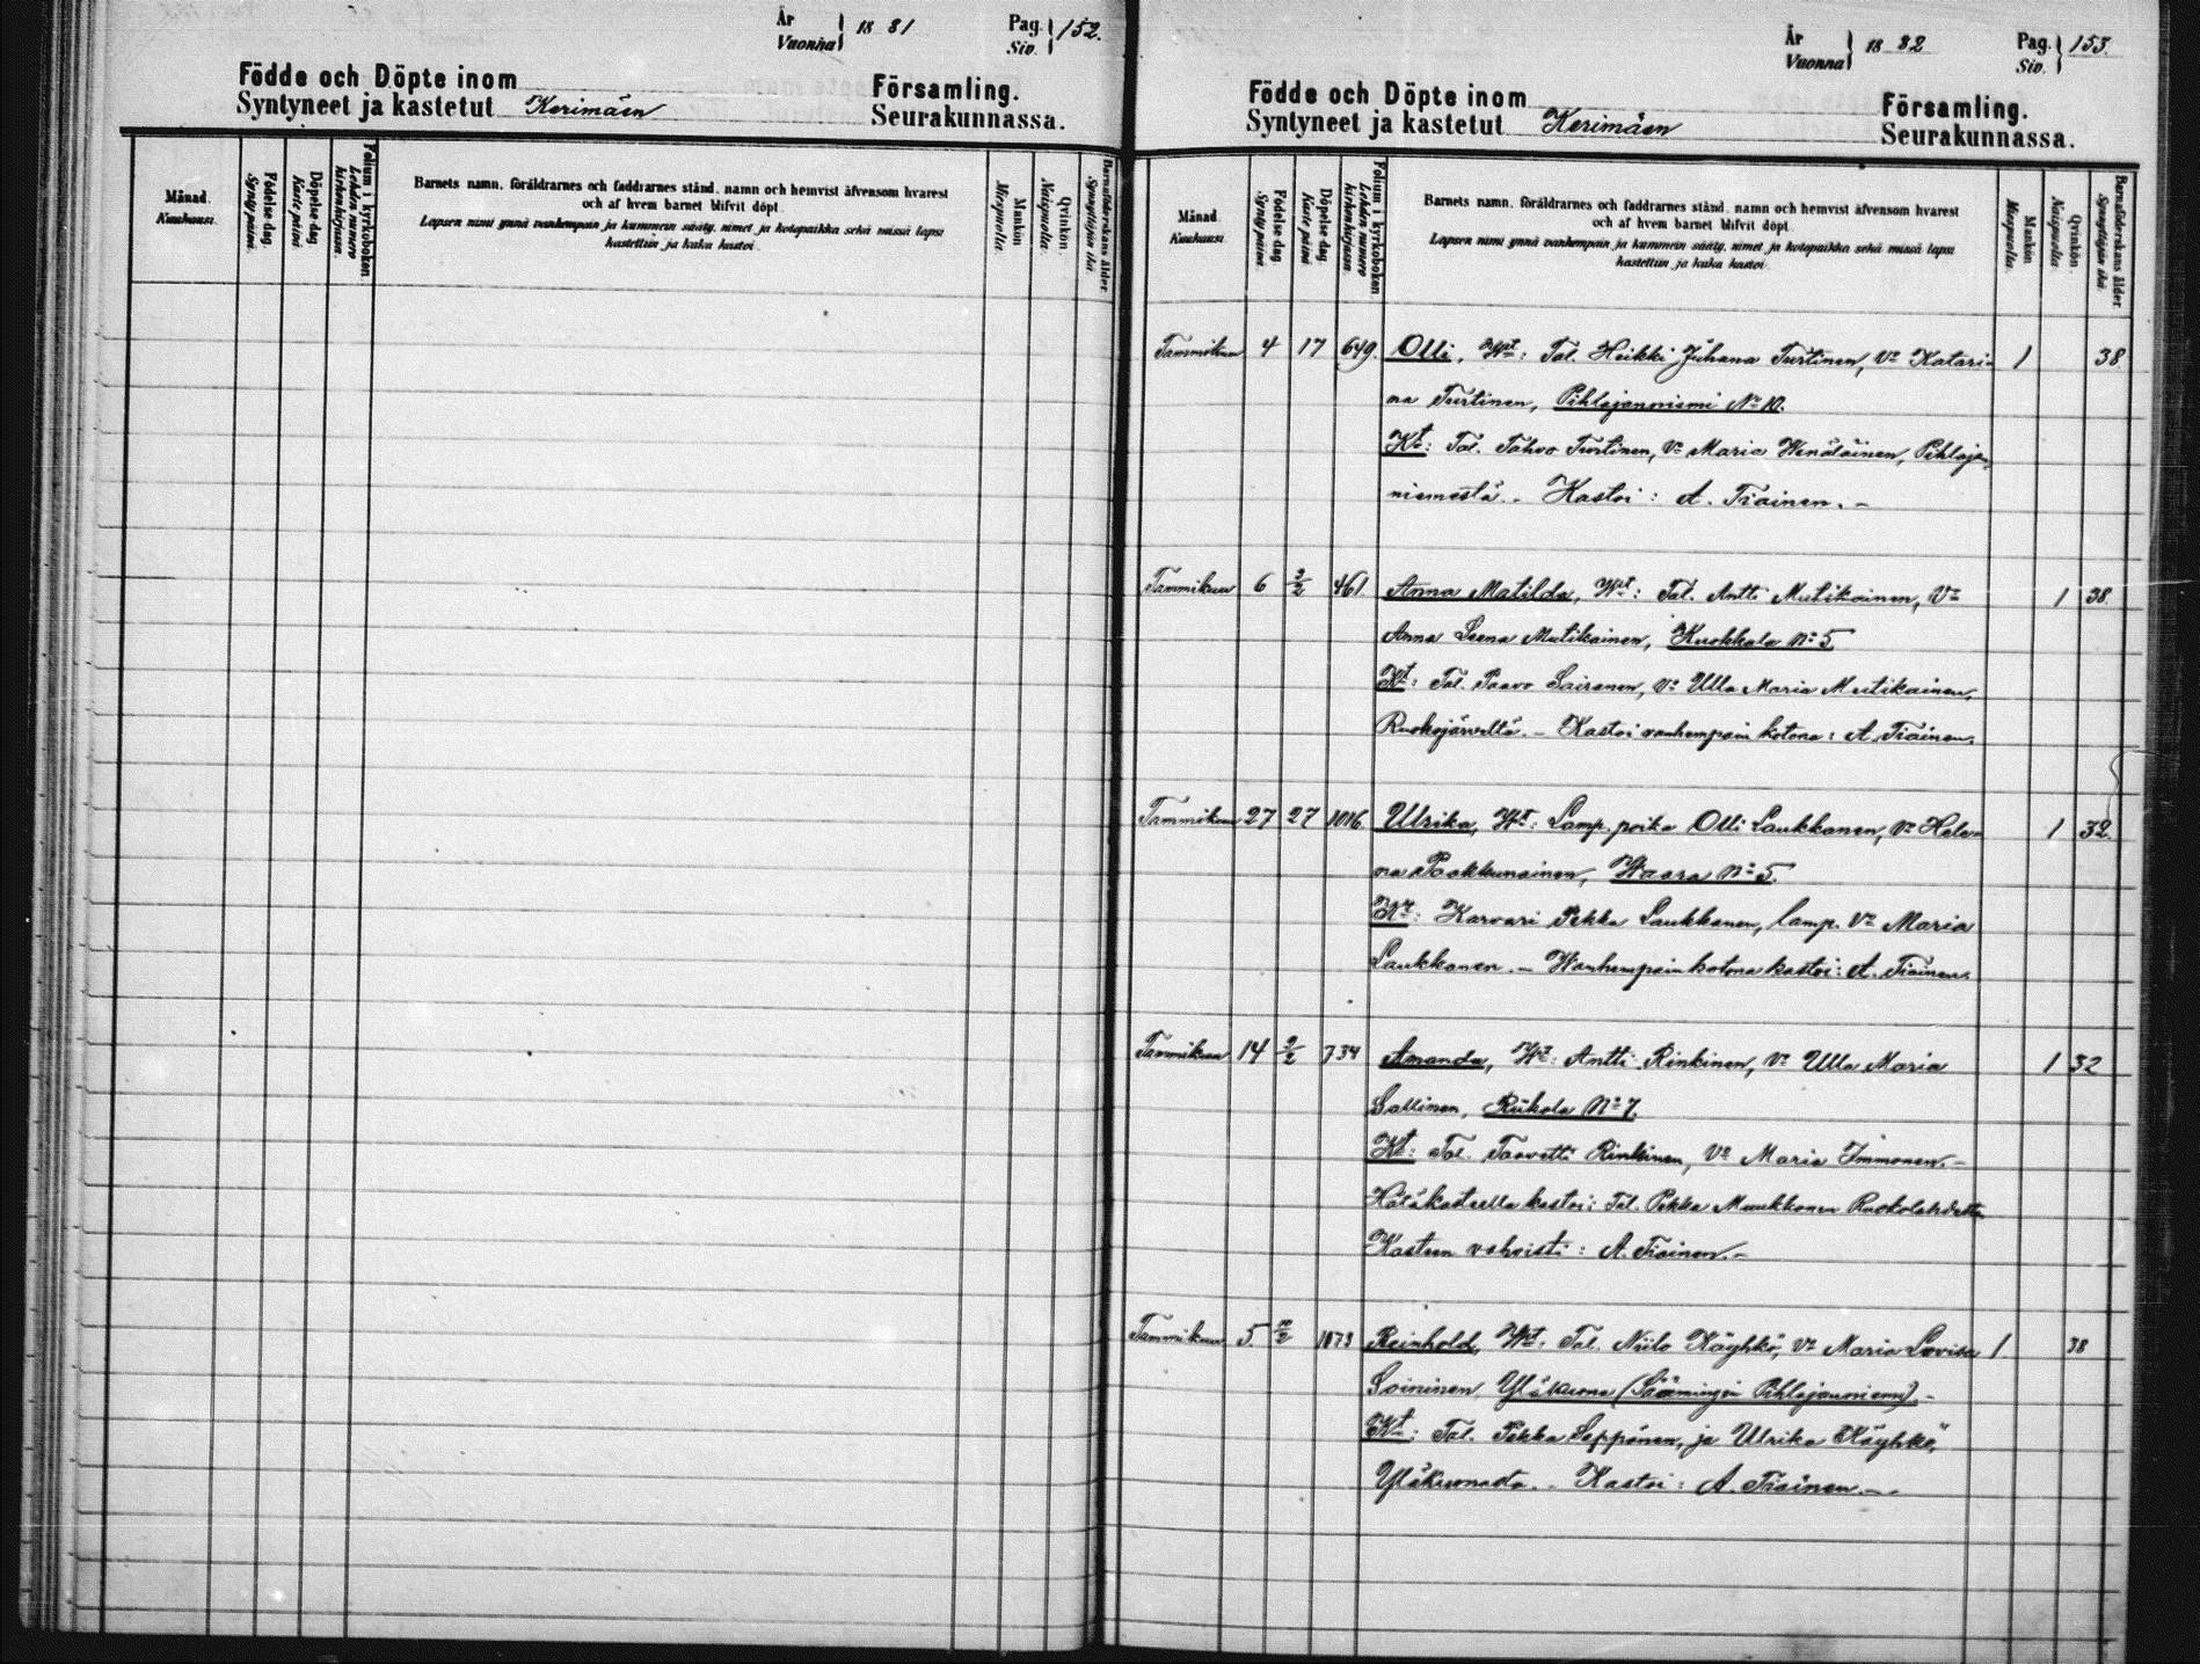 År
Vuonna 18 81
Pag.
Siv. 152.
Födde och Döpte inom
Syntyneet ja kastetut Kerimäen
Församling.
Seurakunnassa.
Månad.
Kuukausi.
Födelse dag.
Synty päivä.
Döpelse dag
Kaste päivä
Folium i kyrkoboken
Lehden numero
kirkonkirjassa.
Barnets namn, föräldrarnes och faddrarnes stånd, namn och hemvist äfvensom hvarest
och af hvem barnet blifvit döpt.
Lapsen nimi ynnä vanhempain ja kummein sääty, nimet ja kotopaikka sekä missä lapsi
kastettiin ja kuka kastoi.
Mankön
Miespuolia.
Qvinkön.
Naispuolia.
Barnaföderskans ålder.
Synnyttäjän ikä.
År
Vuonna 18 82
Pag.
Siv. 153.
Födde och Döpte inom
Syntyneet ja kastetut Kerimäen
Församling.
Seurakunnassa.
Månad
Kuukausi
Födelse dag
Synty päivä
Döpelse dag
Kaste päivä
Folium i kyrkoboken
Lehden numero
kirkonkirjassa
Barnets namn, föräldrarnes och faddrarnes stånd, namn och hemvist äfvensom hvarest
och af hvem barnet blifvit döpt.
Lapsen nimi ynnä vanhempain ja kummein sääty, nimet ja kotopaikka sekä missä lapsi
kastettiin ja kuka kastoi.
Mankön
Miespuolia.
Qvinkön.
Naispuolia
Barnaföderskans ålder
Synnyttäjän ikä.
Tammikuu 4 17 649. Olli, Wt: Tal. Heikki Juhana Turtinen, Vo Katari- 1 38
na Turtinen, Pihlajanniemi No 10.
Kt: Tal. Tahvo Turtinen, Vo Maria Wenäläinen, Pihlajan-
niemestä. - Kastoi: A. Tiainen. -
Tammikuu 6 2/2 461 Anna Matilda, Wt: Tal. Antti Mutikainen, Vo 1 38.
Anna Leena Mutikainen, Kuokkala No 5
Kt: Tal. Paavo Sairanen, Vo Ulla Maria Mutikainen,
Ruokojärveltä. - Kastoi vanhempain kotona: A. Tiainen.
Tammikuu 27 27 1016. Ulrika, Wt: Lamp. poika Olli Laukkanen, Vo Hele- 1 32.
na Paakkunainen, Waara No 5.
Kt: Karvari Pekka Laukkanen, lamp. Vo Maria
Laukkanen. - Wanhempain kotona kastoi: A. Tiainen.
Tammikuu 14 2/2 734 Amanda, Wt: Antti Rinkinen, Vo Ulla Maria 1 32
Sallinen, Riikola No 7.
Kt: Tal. Taavetti Rinkinen, Vo Maria Immonen. -
Hätäkasteella kastoi: Tal. Pekka Muukkonen Ruokolahdelta
Kasteen vahvisti: A. Tiainen. -
Tammikuu 5. /2 1073 Reinhold, Wt: Tal. Niilo Käyhkö, Vo Maria Lovisa 1 38
Soininen, Yläkuona (Säämingin Pihlajanniemi). -
Kt: Tal. Pekka Seppänen, ja Ulrika Käyhkö,
Yläkuonasta. - Kastoi: A. Tiainen. -